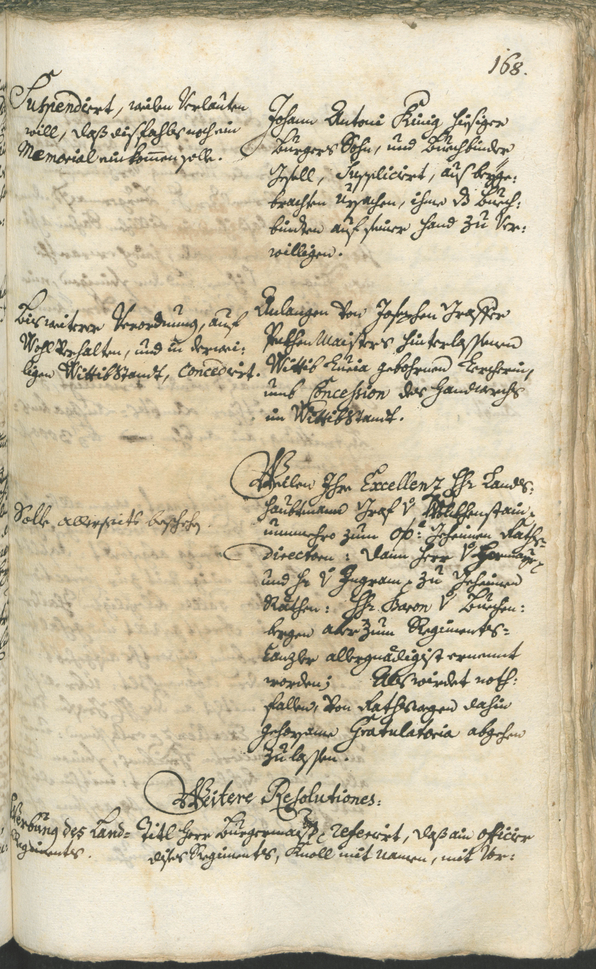 168.
Suspendiert, weilen Verlauten
will, daß diß fahls noch ein
Memorial einkommen solle.
Johann Antoni König hiesiger
Burgers Sohn, und Buechbinder
Gsell, Supplicirt, aus beyge-
brachten Ursachen, ihme dz Buech-
binden auf seiner Hand zu Ver-
willigen.
Bis weiterer Verordnung, auf
Wohlverhalten, und in derwei-
ligen Wittibstandt, concedirt.
Anlangen von Josephen
Peckhen Maisters hinterlassenen
Wittib Maria gebohrnen
umb Concession des Handwerchs
im Wittibstandt.
Solle allerseits beschehen.
Weilen Ihre Excellenz Hr: Lands-
haubtmann Graf V: Wolkhenstain,
nunmehro zum O:Ö: Geheimen Raths-
Directorn: dann Herr V:
und Hr V: Ingram, zu Geheimen
Räthen: Hr: Baron V: Buechen-
bergen aber zum Regiments-
Canzler allergnädigist ernennt
worden; Als wirdet noth-
fallen, von Rathswegen dahin
gehorsame Gratulatoria abgehen
zulassen.
Weitere Resolutiones:
Werbung des Land-
Regiments.
Titl Herr Burgermaister referirt, daß ain officier
dises Regiments, Knoll mit namen, mit Vor-